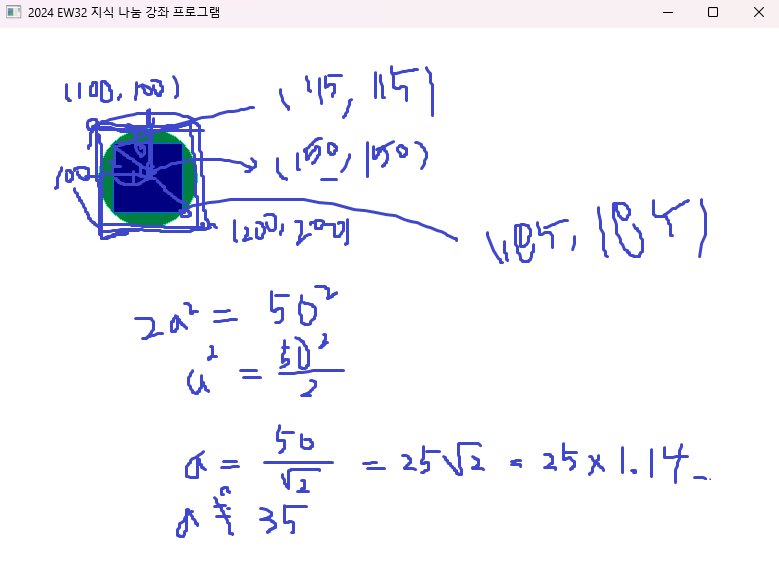 2024 EW32 지식 나눔 강좌 프로그램
(100, 100)
(115, 115)
(150, 150)
100
(200, 200)
(185, 185)
2a² = 50²
a² = 50²/2
a = 50/√2 = 25√2 = 25 × 1.14...
a ≒ 35